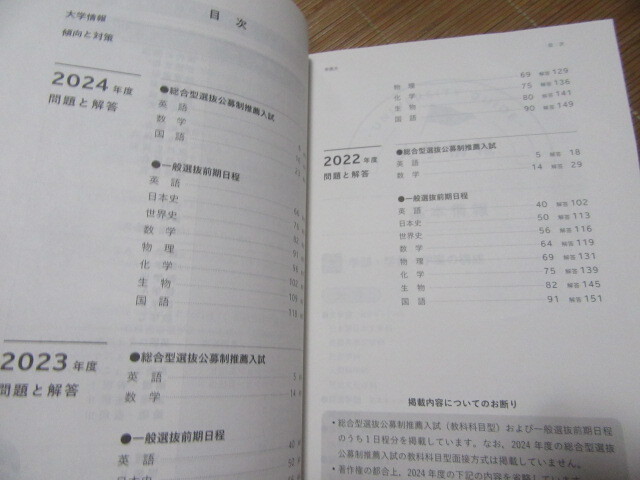 大学情報
傾向と対策
目次
2024年度
問題と解答
●総合型選抜公募制推薦入試
英語
数学
国語
●一般選抜前期日程
英語
日本史
世界史
数学
物理
化学 102
生物 109
国語 118
2023年度
問題と解答
●総合型選抜公募制推薦入試
英語 5
数学 14
●一般選抜前期日程
英語 40
日本史 52
世界史
物理 69 解答 129
化学 75 解答 136
生物 80 解答 141
国語 90 解答 149
2022年度
問題と解答
●総合型選抜公募制推薦入試
英語 5 解答 18
数学 14 解答 29
●一般選抜前期日程
英語 40 解答 102
日本史 50 解答 113
世界史 56 解答 116
数学 64 解答 119
物理 69 解答 131
化学 75 解答 139
生物 82 解答 145
国語 91 解答 151
掲載内容についてのお断り
・総合型選抜公募制推薦入試（教科科目型）および一般選抜前期日程
のうち1日程分を掲載しています。なお、2024年度の総合型選抜
公募制推薦入試の教科科目型面接方式は掲載していません。
・著作権の都合上、2024年度の下記の内容を省略しています。